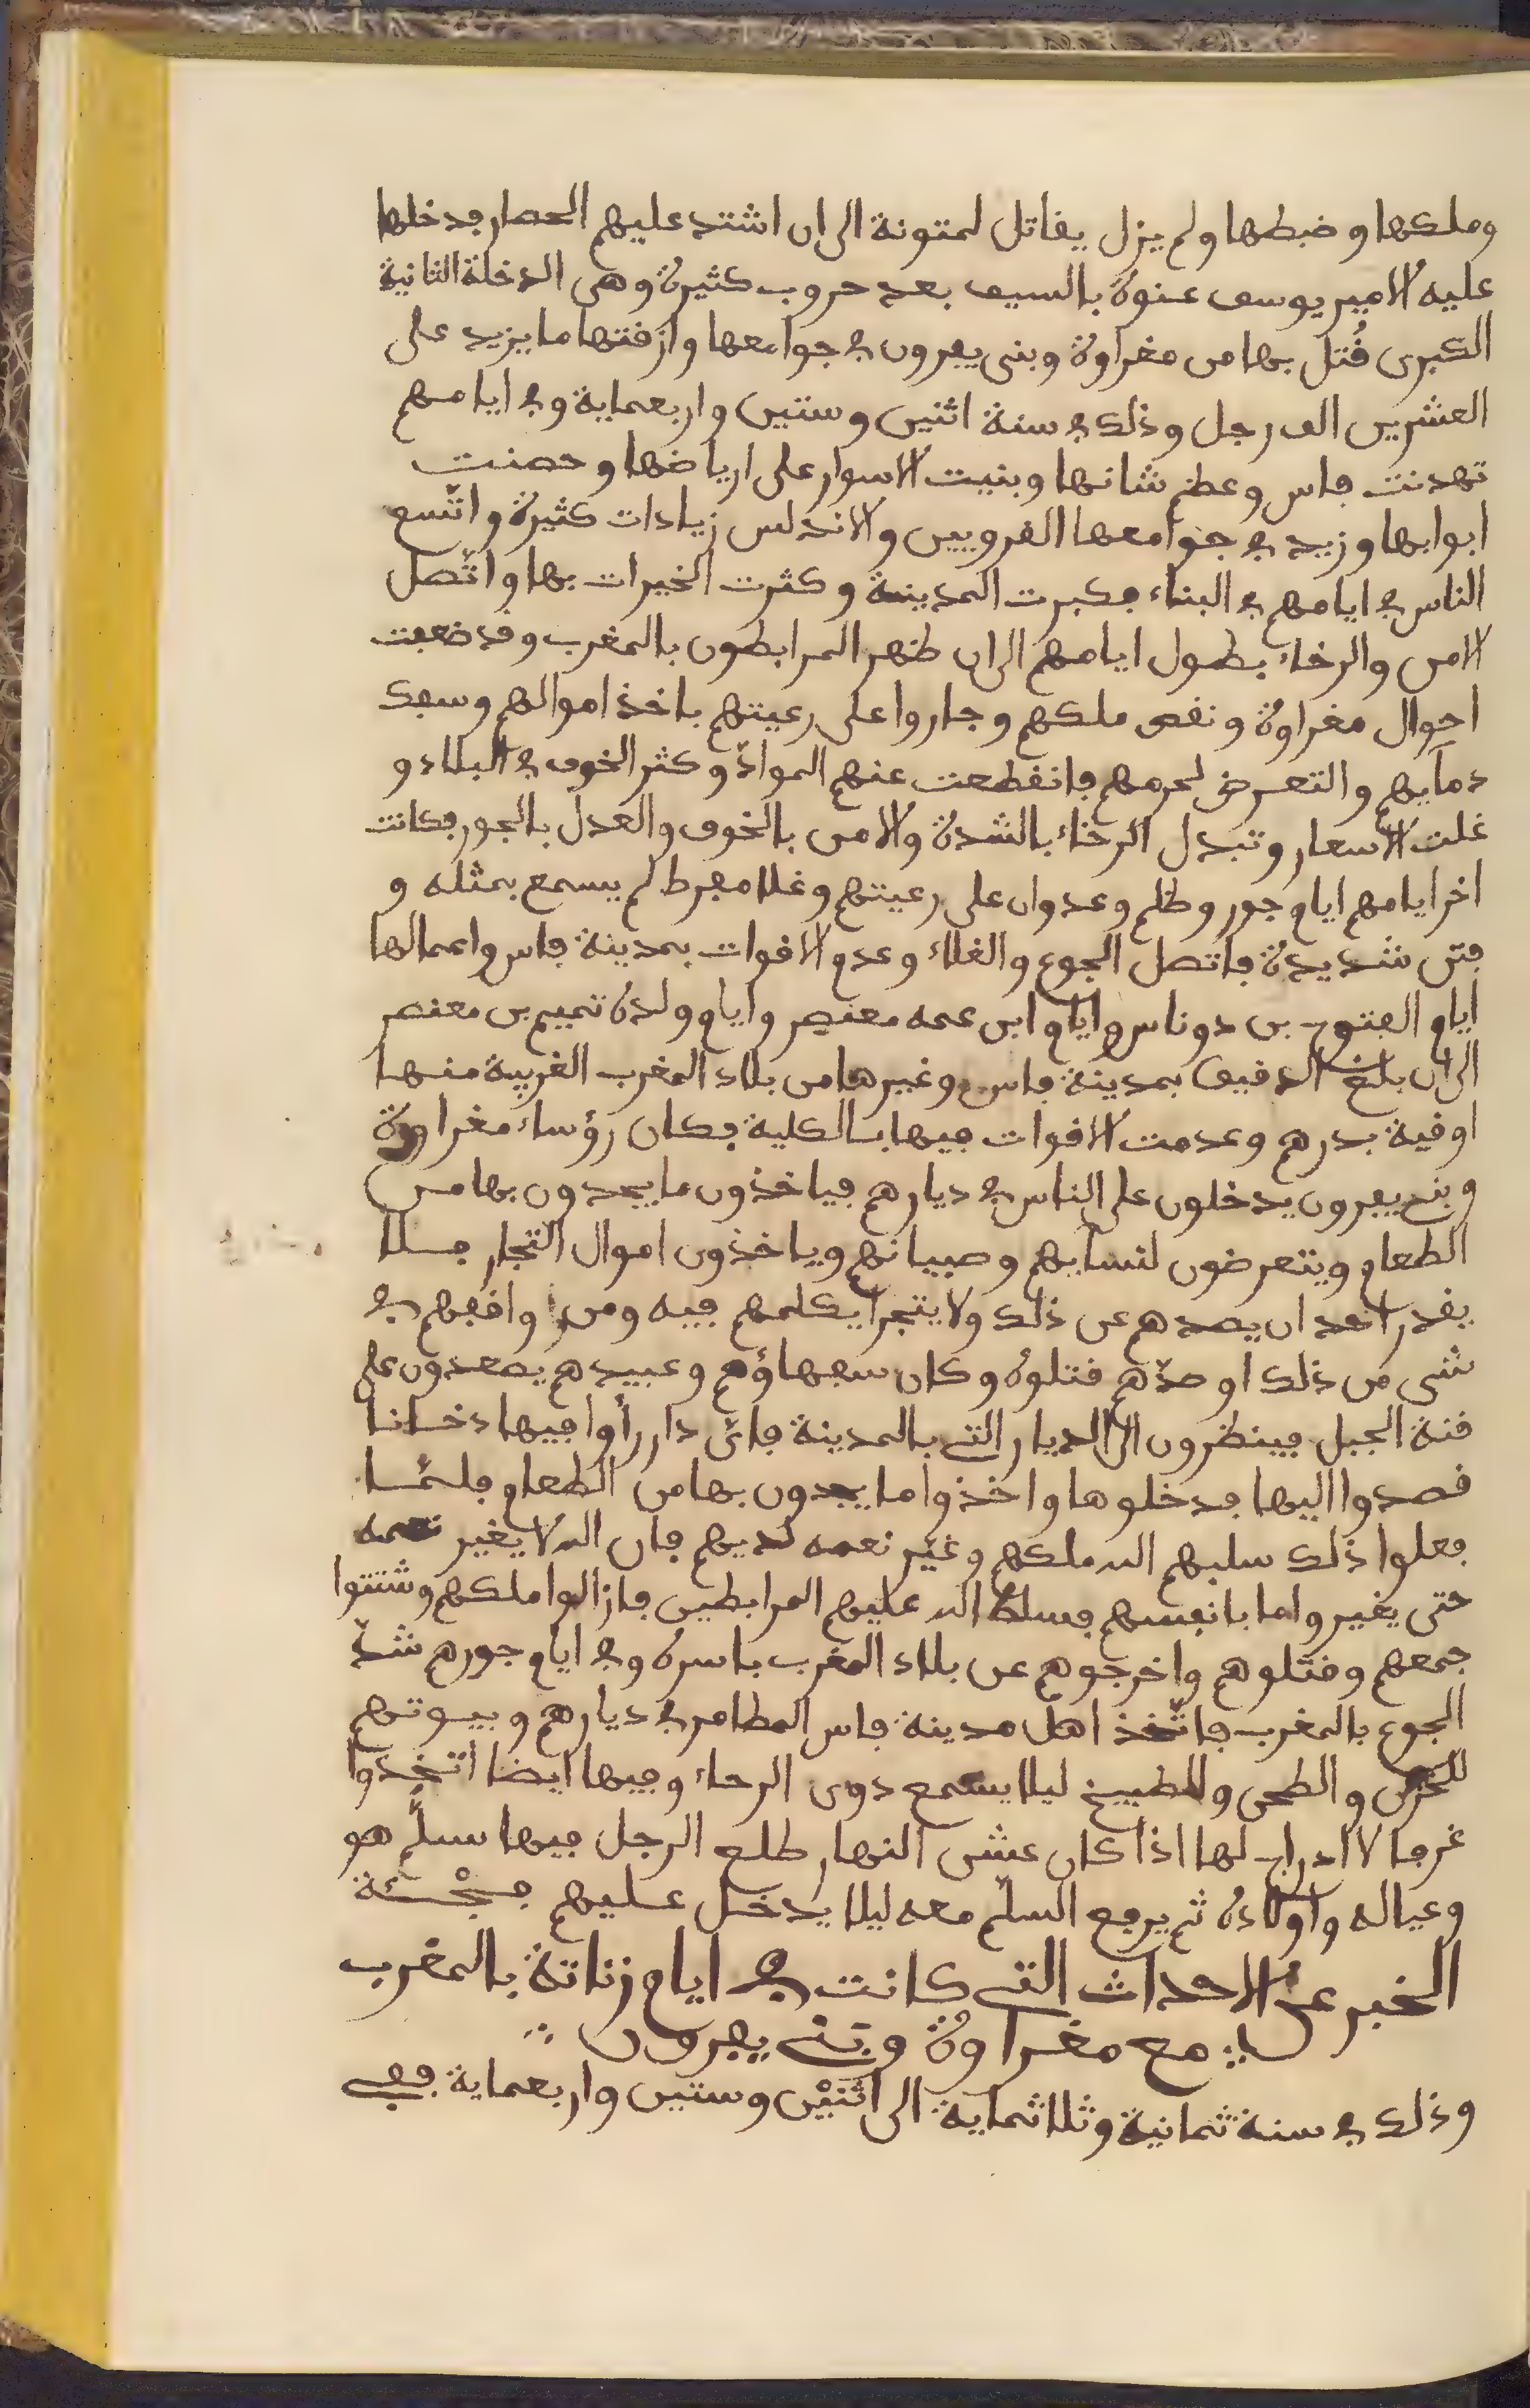 وملكها وضبطها ولم يزل يقاتل لمتونة الى ان اشتد عليهم الحصار فدخلها
عليه الامير يوسف عنوة بالسيف بعد حروب كثيرة وهى الدخلة الثانية
الكبرى قُتل بها من مغراوة وبنى يفرون في جوامعها وازقتها ما يزيد على
العشرين الف رجل وذلك في سنة اثنين وستين واربعماية وفي ايامهم
تهدنت فاس وعظم شانها وبنيت الاسوار على ارياضها وحصنت
ابوابها وزيد في جوامعها القرويين والاندلس زيادات كثيرة واتّسع
الناس في ايامهم في البناء فكبرت المدينة وكثرت الخيرات بها واتّصل
الامن والرخاء بطول ايامهم الى ان ظهر المرابطون بالمغرب وقد ضعفت
احوال مغراوة ونقص ملكهم وجاروا على رعيتهم باخذ اموالهم وسفك
دمآيهم والتعرض لحرمهم فانقطعت عنهم الموادّ وكثر الخوف في البلاد و
غلت الاسعار وتبدل الرخاء بالشدة والامن بالخوف والعدل بالجور فكانت
اخر ايامهم ايام جور وظلم وعدوان على رعيتهم وغلا مفرط لم يسمع بمثله و
فتن شديدة فاتصل الجوع والغلاء وعدم الاقوات بمدينة فاس واعمالها
ايام الفتوح بن دوناس وايام ابن عمه معنصر وايام ولده تميم بن معنصر
الى ان بلغ الدقيق بمدينة فاس وغيرها من بلاد المغرب القريبة منها
اوقية بدرهم وعدمت الاقوات فيها بالكلية فكان رؤساء مغراوة
وبني يفرون يدخلون على الناس في ديارهم فياخذون ما يجدون بها من
الطعام ويتعرضون لنسآيهم وصبيانهم وياخذون اموال التجار فلا
يقدر احد ان يصدهم عن ذلك ولا يتجرأ يكلمهم فيه ومن وافقهم في
شى من ذلك او صدّهم قتلوه وكان سفهاؤهم وعبيدهم يصعدون على
قنة الجبل فينظرون الى الديار التي بالمدينة فائ دار رأوا فيها دخانا
قصدوا اليها فدخلوها واخذوا ما يجدون بها من الطعام فلمّا
فعلوا ذلك سلبهم الله ملكهم وغيّر نعمه لديهم فان الله لا يغير نعمه
حتى يغيروا ما بانفسهم فسلط الله عليهم المرابطين فازالوا ملكهم وشتتوا
جمعهم وقتلوهم واخرجوهم عن بلاد المغرب باسره وفي ايام جورهم شدّ
الجوع بالمغرب فاتّخذ اهل مدينة فاس المطامر في ديارهم وبيوتهم
للخزن والطحى وللطبيخ ليلا يسمع دوى الرحاء وفيها ايضا اتخذوا
غرفا لا ادراج لها اذا كان عشى النهار طلع الرجل فيها سلّم هو
وعياله واولاده ثم يرفع السلّم معه ليلا يدخل عليهم فجْئة
الخبر عن الاحداث التي كانت في ايام زناتة بالمغرب
مع مغراوة وبني يفرون
وذلك في سنة ثمانية وثلاثماية الى اثنيْن وستين واربعماية ففي